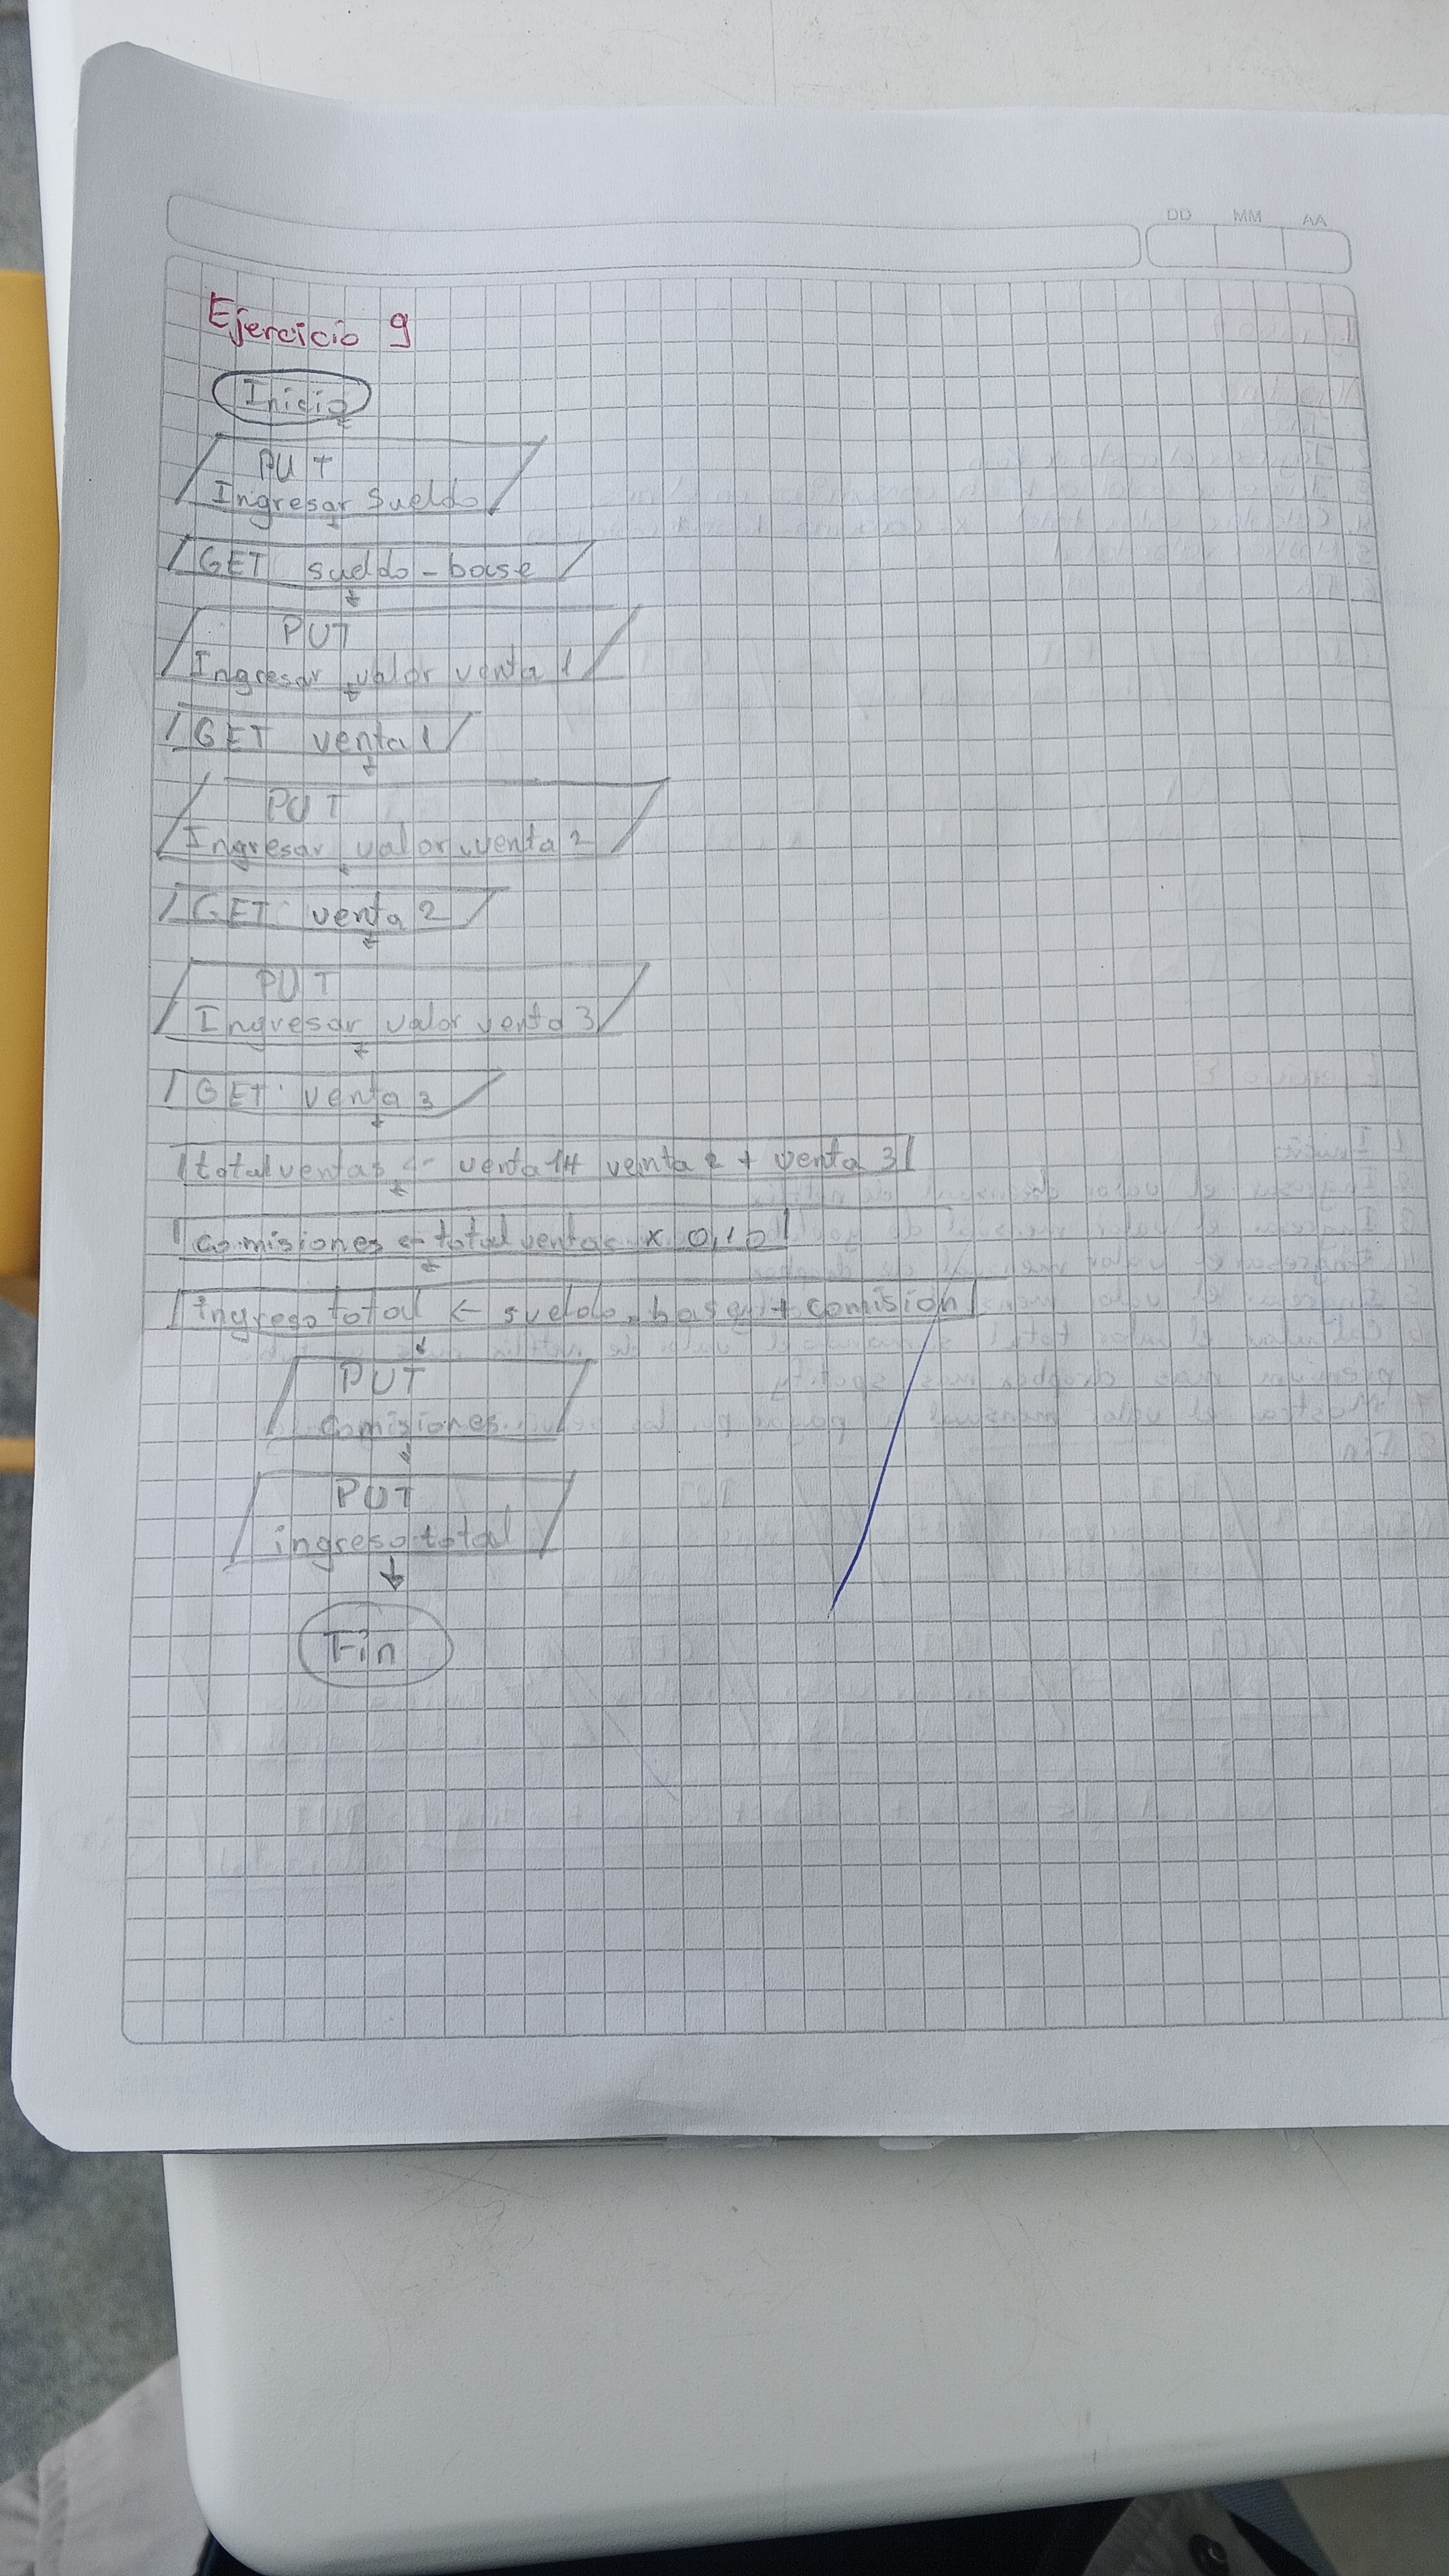 DD MM AA
Ejercicio 9
Inicio
PUT
Ingresar Sueldo
GET sueldo-base
PUT
Ingresar valor venta 1
GET venta 1
PUT
Ingresar valor venta 2
GET venta 2
PUT
Ingresar valor venta 3
GET venta 3
total ventas <- venta 1+ venta 2 + venta 3
comisiones <- total ventas x 0,10
ingreso total <- sueldo-base + comision
PUT
comisiones
PUT
ingreso total
Fin